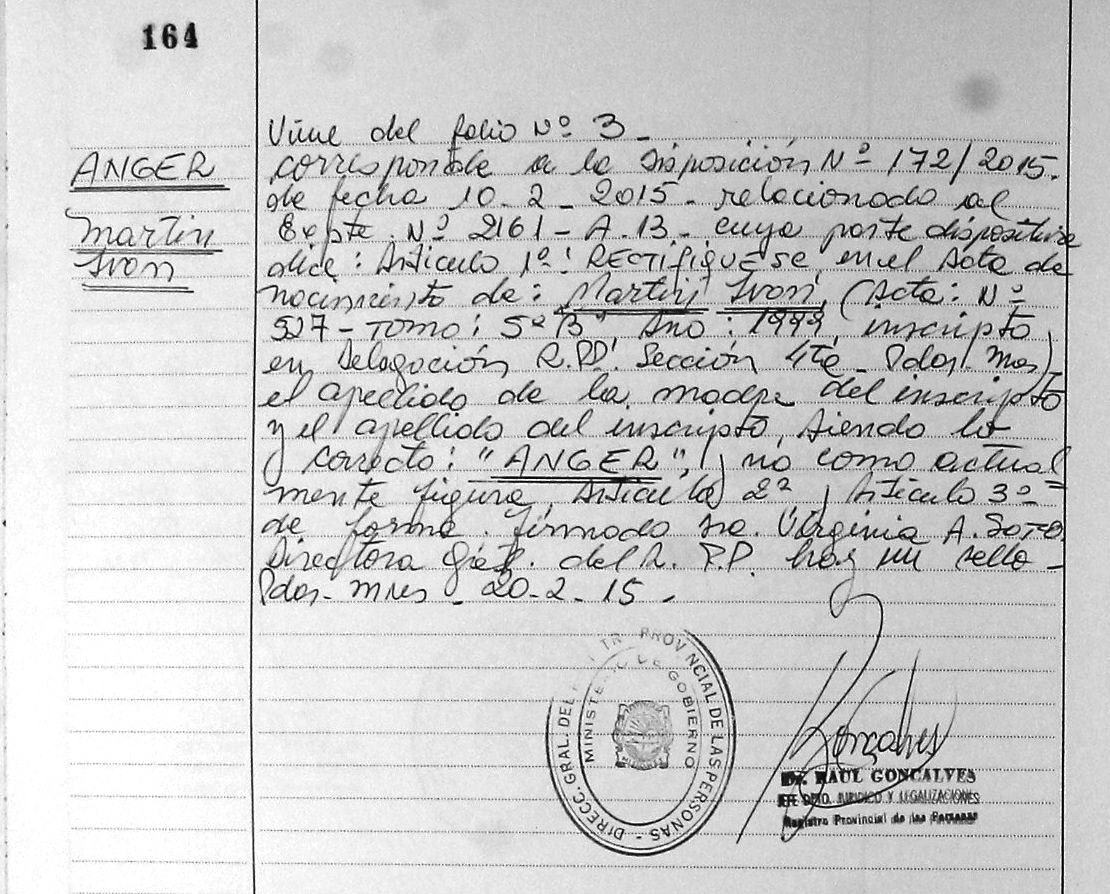 164
ANGER
Martin
Ivan
Viene del folio Nº 3 -
corresponde a la Disposición Nº 172/2015.
de fecha 10-2-2015- relacionado al
Expte. Nº 2161-A-13- cuya parte dispositiva
dice: Artículo 1º: RECTIFIQUESE en el Acta de
nacimiento de: Martin Ivan, (Acta: Nº
527-Tomo: 5º "B" Año: 1999, inscripto
en Delegación R.PP. Sección 4ta- Pdas. Mnes),
el apellido de la madre del inscripto
y el apellido del inscripto, siendo lo
correcto: "ANGER", y no como actual
mente figura, Artículo 2º y Artículo 3º
de forma. Firmado Dra. Virginia A. SOTO.
Directora Gral. del R. P.P. hay un sello-
Pdas- Mnes- 20-2-15-
DIRECC. GRAL. DEL PROVINCIAL DE LAS PERSONAS -
MINISTERIO DE GOBIERNO
MISIONES
Goncalves
Dr. RAUL GONCALVES
JEFE DPTO. JURIDICO Y LEGALIZACIONES
Registro Provincial de las Personas